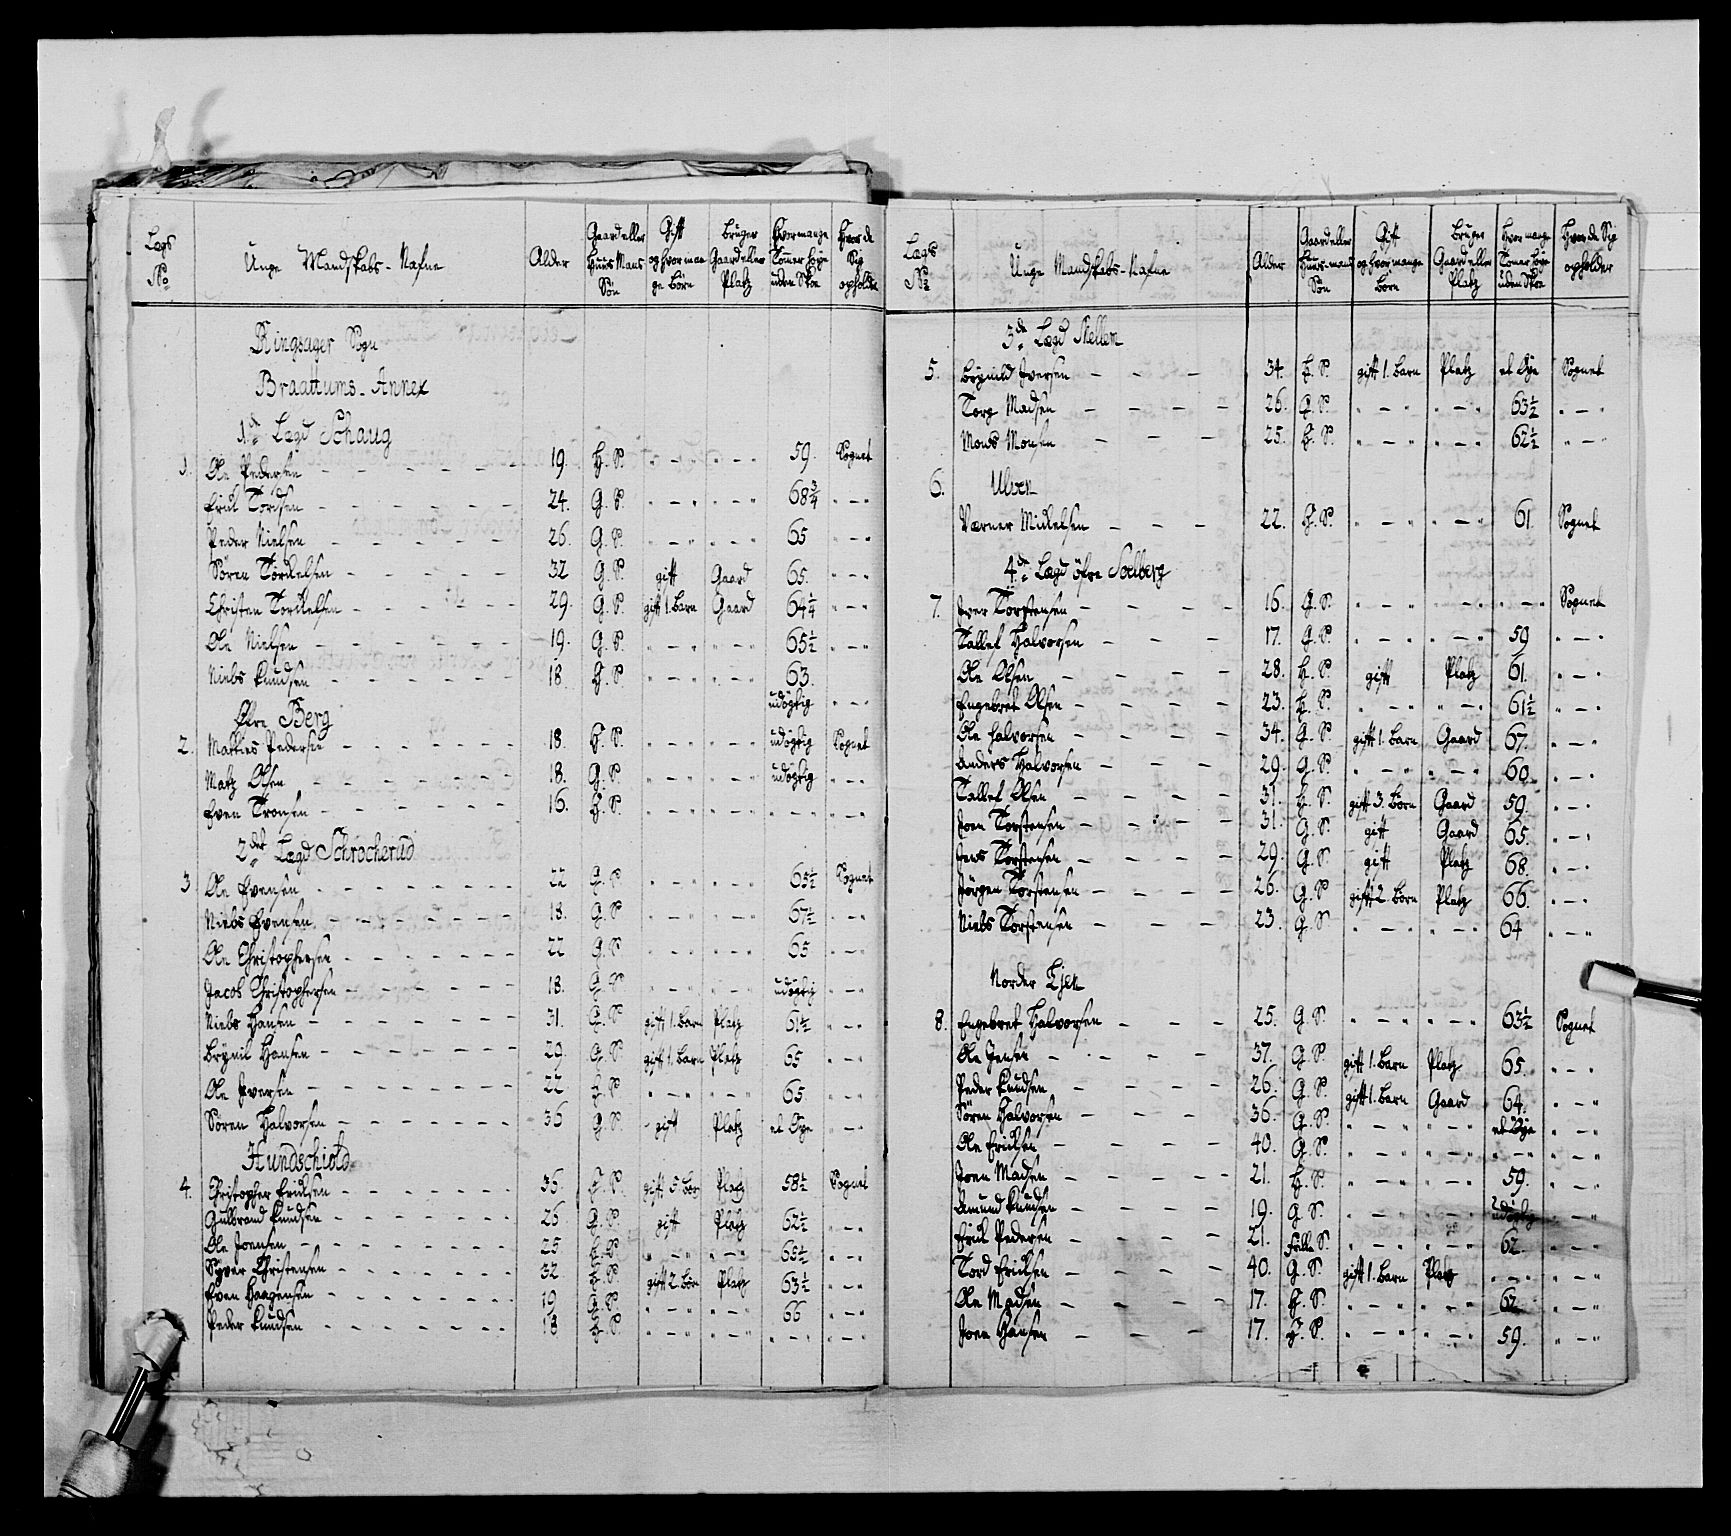 Lægs No | Unge Mandskabs-Nafne | Alder | Gaard eller Huus Mans Søn | Gift og hvor mange Børn | Bruger Gaard eller Platz | Hvor mange Tomer høye uden Skoe | Hvor de Sig opholder
Ringsager Sogn
Braattums-Annex
1de Lægd Schaug
1. Ole Pedersen - 19. H. S. " - " " - " 59. Sognet
Erick Tordsen - 24. G. S. " - " " - " 68 3/4 " - "
Peder Nielsen - 26. G. S. " - " " - " 65 " - "
Sören Torckelsen - 32 G. S. gift Gaard 65. " - "
Christen Torckelsen - 29. G. S. gift 1. Barn Gaard 64 1/4 " - "
Ole Nielsen - 19. G. S. " - " " - " 65 1/2 " - "
Niels Knudsen - 18. G. S. " - " " - " 63. udögtig " - "
Øfre Berg
2. Mathies Pedersen - 18. H. S. " - " " - " udögtig Sognet
Matz Olsen - 18. G. S. " - " " - " udögtig " - "
Even Tronsen - 16. H. S. " - " " - " " - " " - "
2den Lægd Schrocherud
3 Ole Evensen - 22 G. S. " - " " - " 65 1/2 Sognet
Niels Evensen - 18. G. S. " - " " - " 67 1/2 " - "
Ole Christophersen - 22 G. S. " - " " - " 65 " - "
Jacob Christophersen - 18. G. S. " - " " - " udögtig " - "
Niels Hansen - 31. G. S. gift 1. Barn Platz 61 1/2 " - "
Brÿnil Hansen - 29. G. S. gift 1. Barn Platz 65 " - "
Ole Iversen - 22 H. S. " - " " - " 65 " - "
Sören Halvorsen - 36 G. S. gift Platz et Øye " - "
Hundschiold
4. Christopher Ericksen - 36. H. S. gift 5. Bör Platz 58 1/2 Sognet
Gulbrand Knudsen - 26 G. S. gift Platz 62 1/2 " - "
Ole Joensen - 25 H. S. " - " " - " 65 1/2 " - "
Syver Christensen - 32 H. S. gift 2. Börn Platz 63 1/2 " - "
Even Haagensen - 19 G. S. " - " " - " 66 " - "
Peder Knudsen - 18 H. S. " - " " - " " - " " - "
Lægs No | Unge Mandskabs-Nafne | Alder | Gaard eller Huus-mand Søn | Gift og hvor mange Börn | Bruger Gaard eller Platz | Hvor mange Tomer høye uden Skoe | Hvor de Sig opholder
3de Lægd Stellen
5. Brÿnild Iversen - 34. H. S. gift 1. Barn Platz et Øye Sognet
Torg Madsen - 26. G. S. " - " " - " 63 1/2 " - "
Mons Monsen - 25. H. S. " - " " - " 62 1/2 " - "
6. Ulven
Verner Mickelsen - 22. H. S. " - " " - " 61 Sognet
4de Lægd öfre Soelberg
7. Iver Torstensen - 16. G. S. " - " " - " " - " Sognet
Tallef Halvorsen - 17. G. S. " - " " - " 59 " - "
Ole Olsen - 28. H. S. gift Platz 61. " - "
Engebret Olsen - 23. H. S. " - " " - " 61 1/2 " - "
Ole Halvorsen - 34. G. S. gift 1. Barn Gaard 67. " - "
Anders Halvorsen - 29. G. S. " - " " - " 60 " - "
Tallef Olsen - 31. H. S. gift 3. Börn Gaard 59. " - "
Joen Torstensen - 31. G. S. gift Gaard 65. " - "
Jens Torstensen - 29. G. S. gift Platz 68. " - "
Jörgen Torstensen - 26. G. S. gift 2. Börn Platz 66. " - "
Niels Torstensen - 23. G. S. " - " " - " 64 " - "
Norder Ejen
8. Engebret Halvorsen - 25. G. S. " - " " - " 63 1/2 Sognet
Ole Jensen - 37. G. S. gift 1. Barn Platz 65. " - "
Peder Knudsen - 26. G. S. gift 1. Barn Gaard 64. " - "
Sören Halvorsen - 36. G. S. " - " " - " et Øye " - "
Ole Ericksen - 40. G. S. " - " " - " " - " " - "
Joen Madsen - 21. H. S. " - " " - " 59. " - "
Amund Knudsen - 19. G. S. " - " " - " udögtig " - "
Erick Pedersen - 21. S. " - " " - " 62. " - "
Tord Ericksen - 40. G. S. gift 1. Barn Platz " - " " - "
Ole Madsen - 17. H. S. " - " " - " 62. " - "
Joen Hansen - 17. H. S. " - " " - " 59. " - "